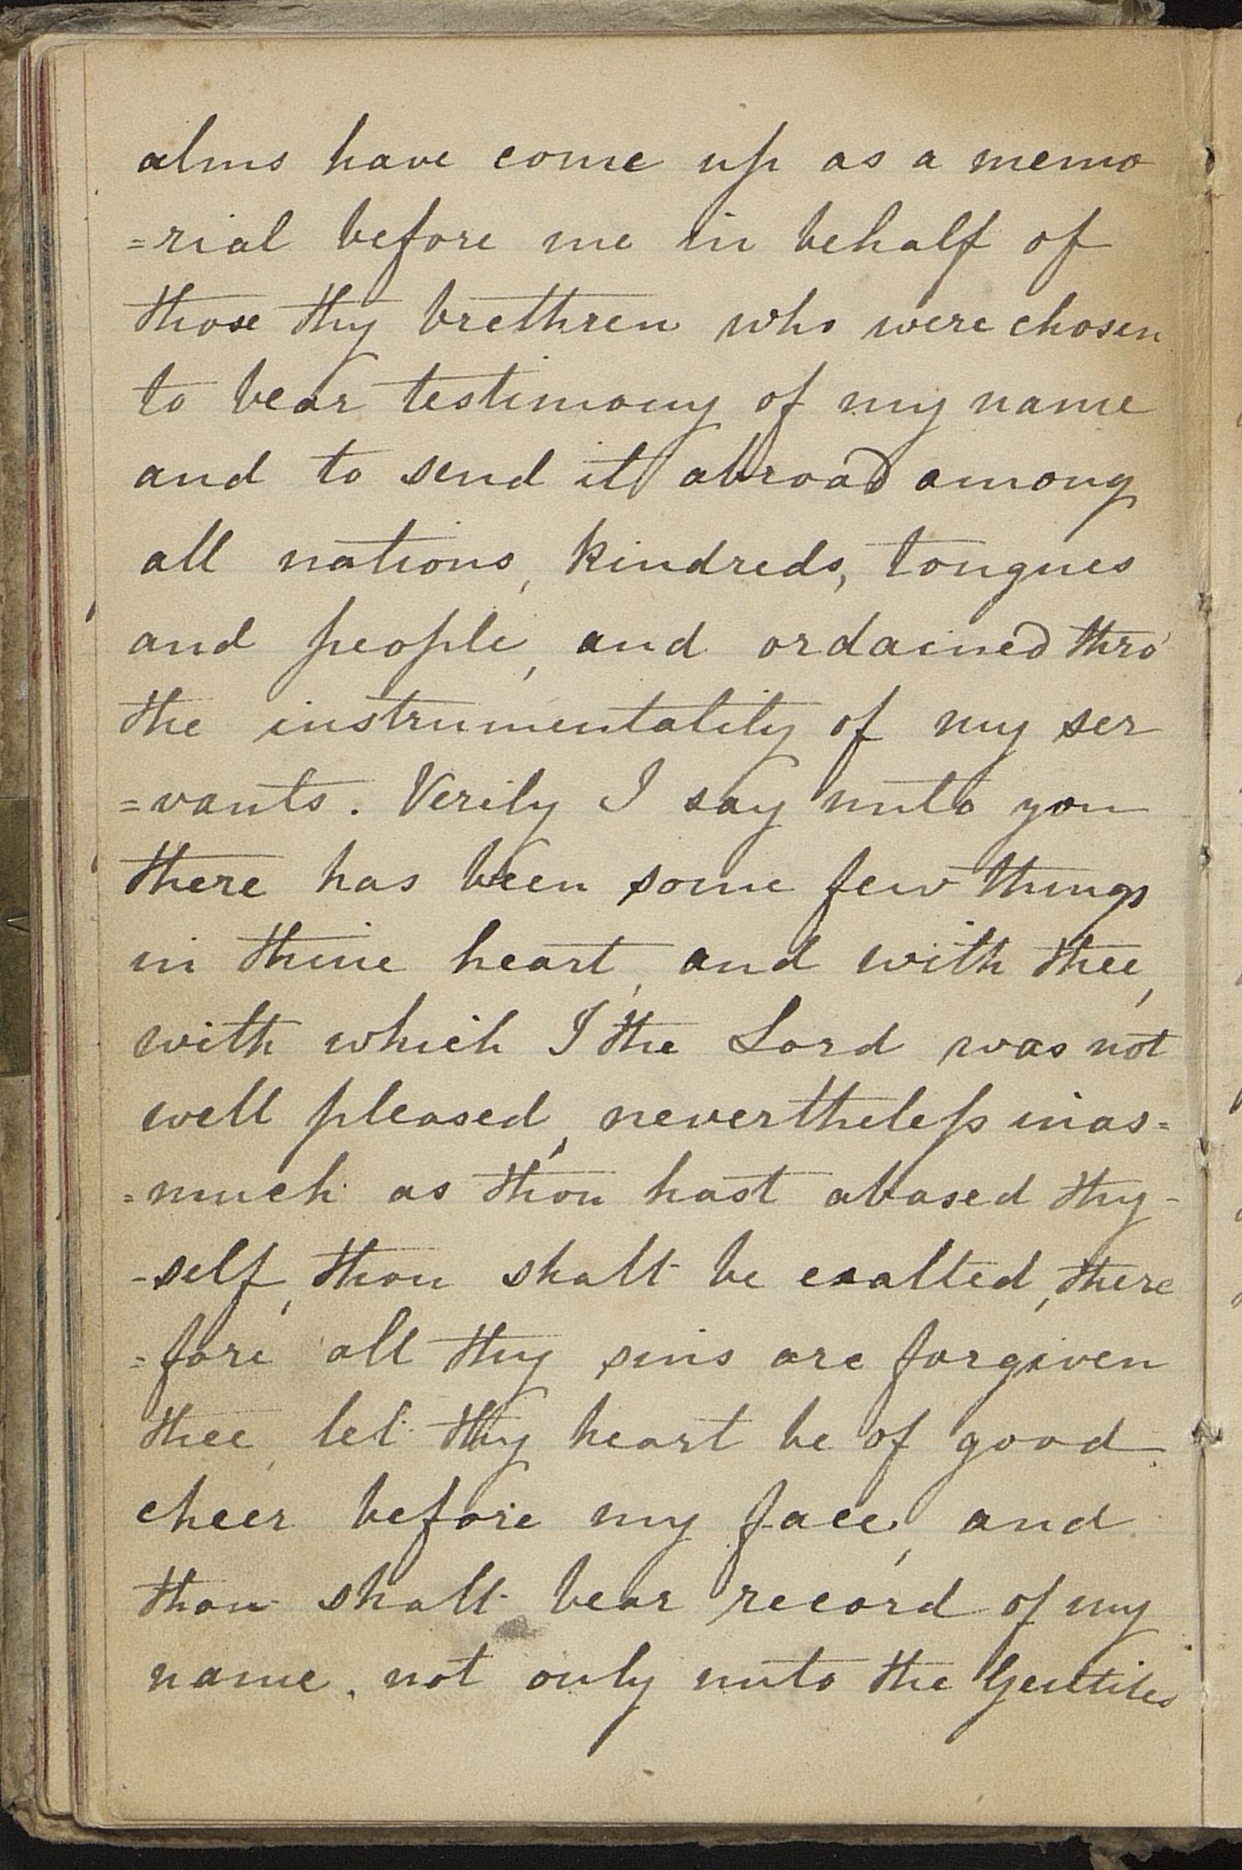 alms have come up as a memo
=rial before me in behalf of
those thy brethren who were chosen
to bear testimony of my name
and to send it abroad among
all nations, kindreds, tongues
and people, and ordained thro'
the instrumentality of my ser
=vants. Verily I say unto you
there has been some few things
in thine heart, and with thee,
with which I the Lord was not
well pleased, nevertheless inas=
=much as thou hast abased thy-
-self, thou shalt be exalted, there
=fore all thy sins are forgiven
thee, let thy heart be of good
cheer before my face, and
thou shalt bear record of my
name, not only unto the Gentiles